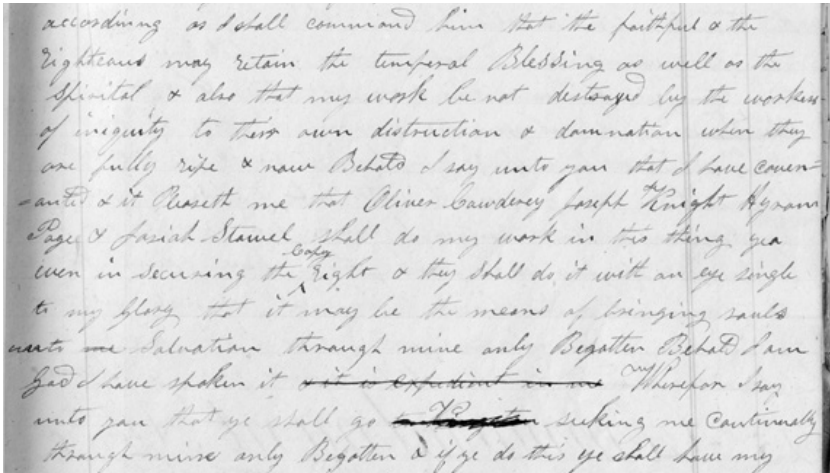 accordining as I shall command him that the faithful & the
righteous may retain the temperal Blessing as well as the
Spirital & also that my work be not destroyed by the workers
of iniquity to ther own distruction & damnation when they
are fully ripe & now Behold I say unto you that I have coven=
=anted & it Pleaseth me that Oliver Cowderey Joseph Knight Hyram
Pagee & Josiah Stowel shall do my work in this thing yea
Copy
even in securing the right & they shall do it with an eye single
to my Glory that it may be the means of bringing souls
unto me Salvation through mine only Begotten Behold I am
God I have spoken it & it is expedient in me Wherefor I say
unto you that ye shall go to Kingston seeking me continually
through mine only Begotten & if ye do this ye shall have my